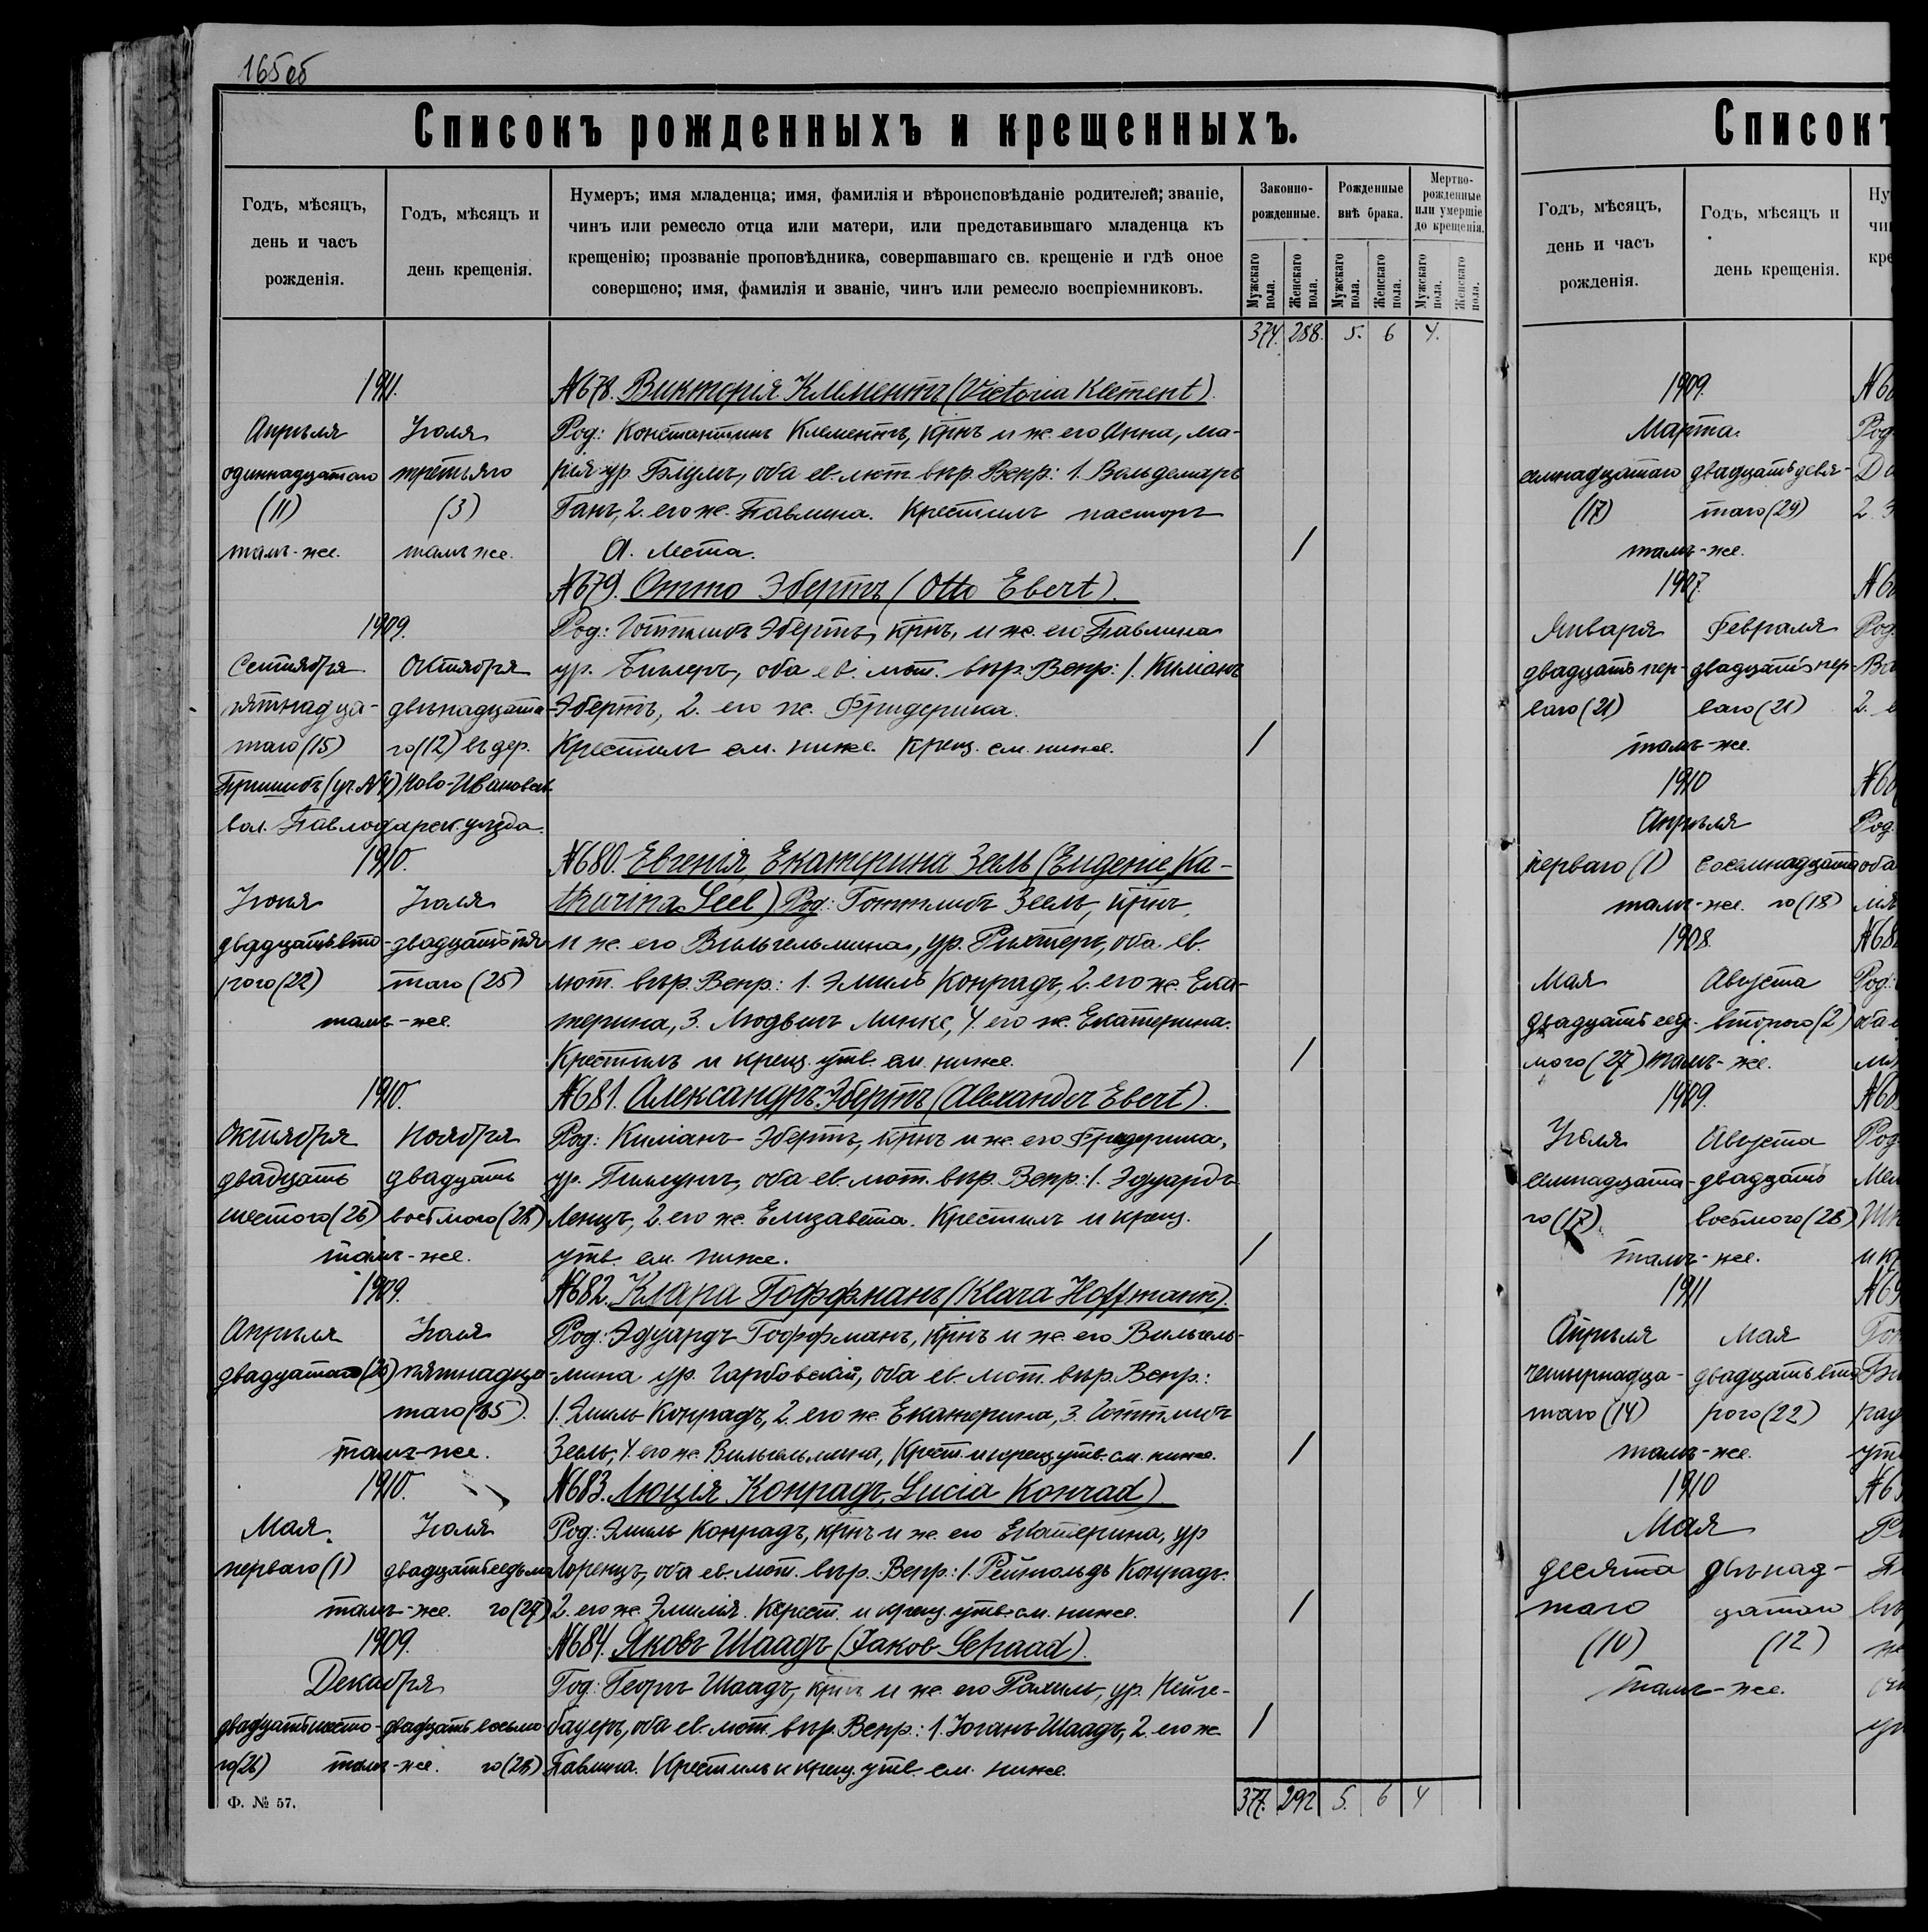 165об
Списокъ рожденныхъ и крещенныхъ.
Годъ, мѣсяцъ, день и часъ рожденія.
Годъ, мѣсяцъ и день крещенія.
Нумеръ; имя младенца; имя, фамилія и вѣроисповѣданіе родителей; званіе,
чинъ или ремесло отца или матери, или представившаго младенца къ
крещенію; прозваніе проповѣдника, совершавшаго св. крещеніе и гдѣ оное
совершено; имя, фамилія и званіе, чинъ или ремесло воспріемниковъ.
Законно-рожденные.
Рожденные внѣ брака.
Мертво-рожденные или умершіе до крещенія.
Мужскаго пола. Женскаго пола. Мужскаго пола. Женскаго пола. Мужскаго пола. Женскаго пола.
374. 288. 5. 6 4.
1911. №678. Викторія Клементъ (Victoria Klement)
Апрѣля Іюля Род: Константинъ Клементъ, крнъ и же. его Анна, Ма-
одиннадцатого третьяго рія ур. Блумъ, оба ев. лют. вѣр. Вспр: 1. Вольдемаръ
(11) (3) Ганъ, 2. его же. Павлина. Крестилъ пасторъ
тамъ-же. тамъ же. А. Леста. /
№679. Отто Эбертъ (Otto Ebert).
1909. Род: Готтлибъ Эбертъ, крнъ, и же. его Павлина
Сентября Октября ур. Билеръ, оба ев. лют. вѣр. Вспр: 1. Киліанъ
пятнадца- двѣнадцата- Эбертъ, 2. его же. Фридерика.
таго (15) го (12) въ дер. Крестилъ см. ниже. Крещ. см. ниже. /
Пришибъ (уч. №4) Ново-Ивановск.
вол. Павлодарск. уѣзда.
1910. №680. Евгенія, Екатерина Зеель (Eugenie, Ka-
Іюня Іюля tharina Seel) Род: Готтлибъ Зеель, крнъ,
двадцать вто- двадцать пя- и же. его Вильгельмина, ур. Рихтеръ, оба ев.
рого (22) таго (25) лют. вѣр. Вспр: 1. Эмиль Конрадъ, 2. его же. Ека-
тамъ-же. терина, 3. Людвигъ Линке, 4. его же. Екатерина.
Крестилъ и крещ. утв. см. ниже. /
1910. №681. Александръ Эбертъ (Alexander Ebert).
Октября Ноября Род: Киліанъ Эбертъ, крнъ и же. его Фридерика,
двадцать двадцать ур. оба ев. лют. вѣр. Вспр: 1. Эдуардъ
шестого (26) восьмого (28) Ленцъ, 2. его же. Елизавета. Крестилъ и крещ.
тамъ-же. утв. см. ниже. /
1909. №682. Клара Гоффманъ (Klara Hoffmann).
Апрѣля Іюля Род: Эдуардъ Гоффманъ, крнъ и же. его Вильгель-
двадцатаго (20) пятнадца- мина ур. Гарбовскій, оба ев. лют. вѣр. Вспр:
таго (15). 1. Эмиль Конрадъ, 2. его же. Екатерина, 3. Готтлибъ
тамъ-же. Зеель, 4. его же. Вильгельмина, Крест. и крещ. утв. см. ниже. /
1910. №683. Люція Конрадъ, Lucia Konrad)
Мая Іюля Род: Эмиль Конрадъ, крнъ и же. его Екатерина, ур
перваго (1) двадцать седьмо Лоренцъ, оба ев. лют. вѣр. Вспр: 1. Рейнгольдъ Конрадъ.
тамъ-же. го (27) 2. его же. Эмилія. Крест. и крещ. утв. см. ниже. /
1909. №684. Яковъ Шаадъ (Jakob Schaad).
Декабря Род: Георгъ Шаадъ, крнъ и же. его Рахиль, ур. Нейге-
двадцать шесто- двадцать восьмо бауеръ, оба ев. лют. вѣр. Вспр: 1. Іоганъ Шаадъ, 2. его же. /
го (26) тамъ-же. го (28) Павлина. Крестилъ и крещ. утв. см. ниже.
377. 292 5. 6 4
Ф. № 57.
Списокъ
Годъ, мѣсяцъ, день и часъ рожденія.
Годъ, мѣсяцъ и день крещенія.
1909. №6
Марта. Род
семнадцатаго двадцать девя-
(17) таго (29) 2.
тамъ-же.
1907. №6
Января Февраля Род.
двадцать пер- двадцать пер-
ваго (21) ваго (21) 2.
тамъ-же.
1910 №6
Апрѣля Род.
перваго (1) восемнадцата оба
тамъ-же. го (18)
1908. №68
Мая Августа Род:
двадцать седь- второго (2) оба
мого (27) тамъ-же.
1909. №6
Іюля Августа Род
семнадцата- двадцать
го (17). восьмого (28)
тамъ-же.
1911 №6
Апрѣля Мая
четырнадца- двадцать вто
таго (14) рого (22)
тамъ-же.
1910 №6
Мая
десята двѣнад-
таго цатаго
(10) (12)
тамъ-же.